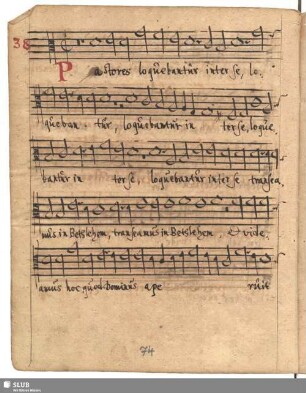 38
Pastores loquebantur inter se, lo-
queban - tur, loquebantur in ter se, loque
bantur in ter se, loquebantur inter se transea
mus in Betslehem, transeamus in Betslehem, et vide
amus hoc quod Dominus ape ruit
74
SLUB